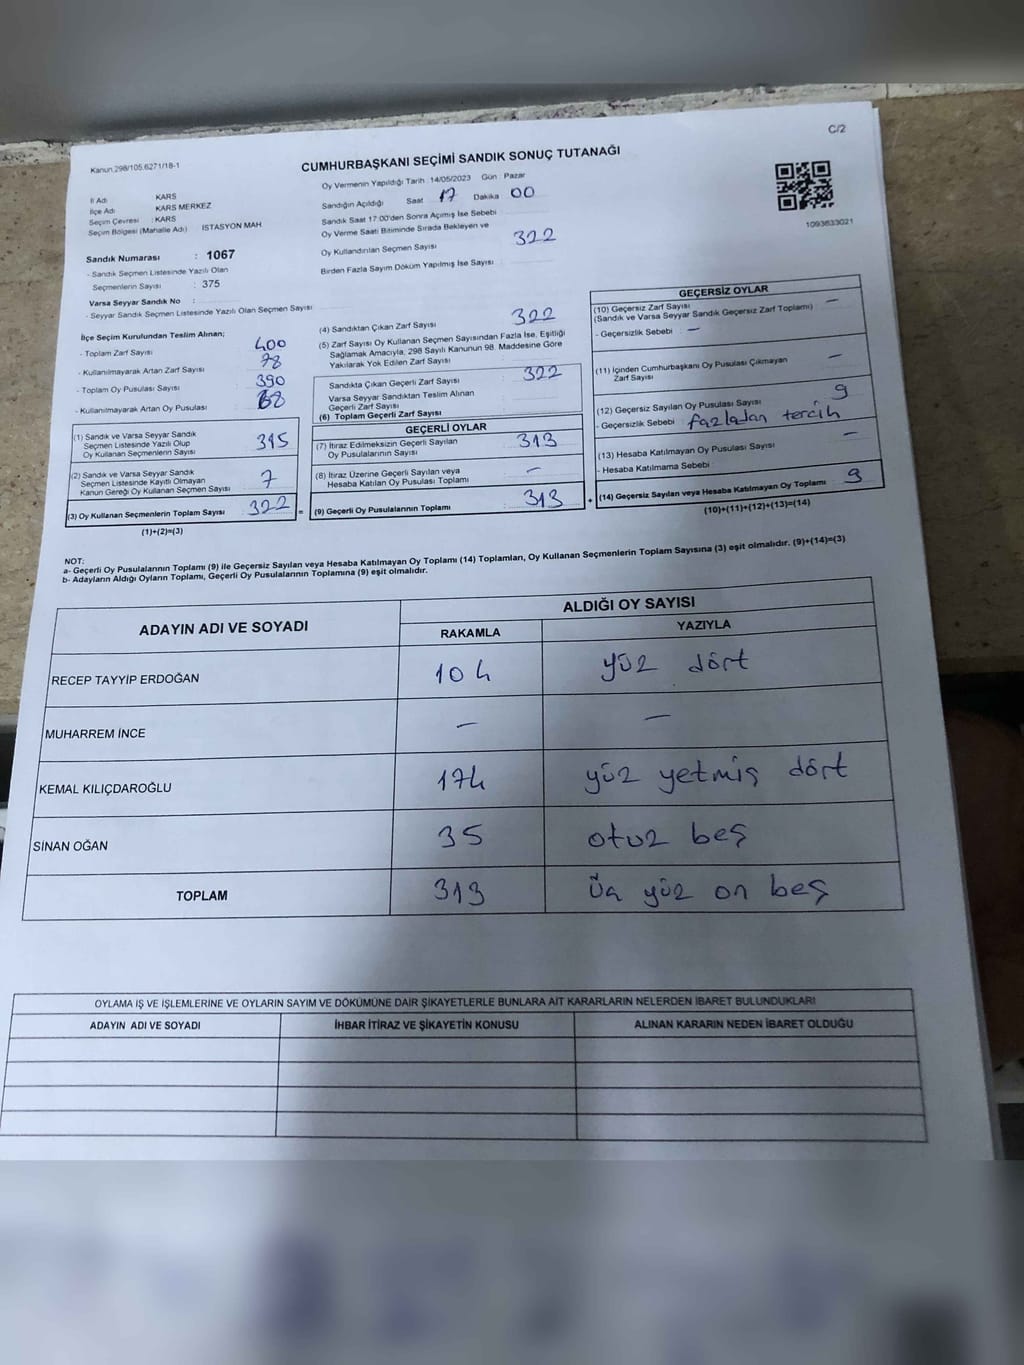 C/2
Kanun.298/105.6271/18-1
CUMHURBAŞKANI SEÇİMİ SANDIK SONUÇ TUTANAĞI
İl Adı KARS
İlçe Adı KARS MERKEZ
Seçim Çevresi : KARS
Seçim Bölgesi (Mahalle Adı) İSTASYON MAH
Sandık Numarası : 1067
- Sandık Seçmen Listesinde Yazılı Olan
Seçmenlerin Sayısı : 375
Varsa Seyyar Sandık No :
- Seyyar Sandık Seçmen Listesinde Yazılı Olan Seçmen Sayısı
Oy Vermenin Yapıldığı Tarih : 14/05/2023 Gün : Pazar
Sandığın Açıldığı Saat 17 Dakika 00
Sandık Saat 17:00'den Sonra Açımış İse Sebebi
Oy Verme Saati Bitiminde Sırada Bekleyen ve
Oy Kullandırılan Seçmen Sayısı 322
Birden Fazla Sayım Döküm Yapılmış İse Sayısı
1093633021
İlçe Seçim Kurulundan Teslim Alınan;
- Toplam Zarf Sayısı 400
- Kullanılmayarak Artan Zarf Sayısı 78
- Toplam Oy Pusulası Sayısı 390
- Kullanılmayarak Artan Oy Pusulası 68
(1) Sandık ve Varsa Seyyar Sandık
Seçmen Listesinde Yazılı Olup
Oy Kullanan Seçmenlerin Sayısı 315
(2) Sandık ve Varsa Seyyar Sandık
Seçmen Listesinde Kayıtlı Olmayan
Kanun Gereği Oy Kullanan Seçmen Sayısı 7
(3) Oy Kullanan Seçmenlerin Toplam Sayısı 322 =
(1)+(2)=(3)
(4) Sandıktan Çıkan Zarf Sayısı 322
(5) Zarf Sayısı Oy Kullanan Seçmen Sayısından Fazla İse, Eşitliği
Sağlamak Amacıyla, 298 Sayılı Kanunun 98. Maddesine Göre
Yakılarak Yok Edilen Zarf Sayısı
Sandıkta Çıkan Geçerli Zarf Sayısı 322
Varsa Seyyar Sandıktan Teslim Alınan
Geçerli Zarf Sayısı
(6) Toplam Geçerli Zarf Sayısı
GEÇERLİ OYLAR
(7) İtiraz Edilmeksizin Geçerli Sayılan
Oy Pusulalarının Sayısı 313
(8) İtiraz Üzerine Geçerli Sayılan veya
Hesaba Katılan Oy Pusulası Toplamı —
(9) Geçerli Oy Pusulalarının Toplamı 313 +
GEÇERSİZ OYLAR
(10) Geçersiz Zarf Sayısı —
(Sandık ve Varsa Seyyar Sandık Geçersiz Zarf Toplamı)
- Geçersizlik Sebebi : —
(11) İçinden Cumhurbaşkanı Oy Pusulası Çıkmayan —
Zarf Sayısı
(12) Geçersiz Sayılan Oy Pusulası Sayısı 9
- Geçersizlik Sebebi : fazladan tercih
(13) Hesaba Katılmayan Oy Pusulası Sayısı —
- Hesaba Katılmama Sebebi
(14) Geçersiz Sayılan veya Hesaba Katılmayan Oy Toplamı 9
(10)+(11)+(12)+(13)=(14)
NOT:
a- Geçerli Oy Pusulalarının Toplamı (9) ile Geçersiz Sayılan veya Hesaba Katılmayan Oy Toplamı (14) Toplamları, Oy Kullanan Seçmenlerin Toplam Sayısına (3) eşit olmalıdır. (9)+(14)=(3)
b- Adayların Aldığı Oyların Toplamı, Geçerli Oy Pusulalarının Toplamına (9) eşit olmalıdır.
ADAYIN ADI VE SOYADI ALDIĞI OY SAYISI
RAKAMLA YAZIYLA
RECEP TAYYİP ERDOĞAN 104 yüz dört
MUHARREM İNCE — —
KEMAL KILIÇDAROĞLU 174 yüz yetmiş dört
SİNAN OĞAN 35 otuz beş
TOPLAM 313 üç yüz on beş
OYLAMA İŞ VE İŞLEMLERİNE VE OYLARIN SAYIM VE DÖKÜMÜNE DAİR ŞİKAYETLERLE BUNLARA AİT KARARLARIN NELERDEN İBARET BULUNDUKLARI
ADAYIN ADI VE SOYADI İHBAR İTİRAZ VE ŞİKAYETİN KONUSU ALINAN KARARIN NEDEN İBARET OLDUĞU